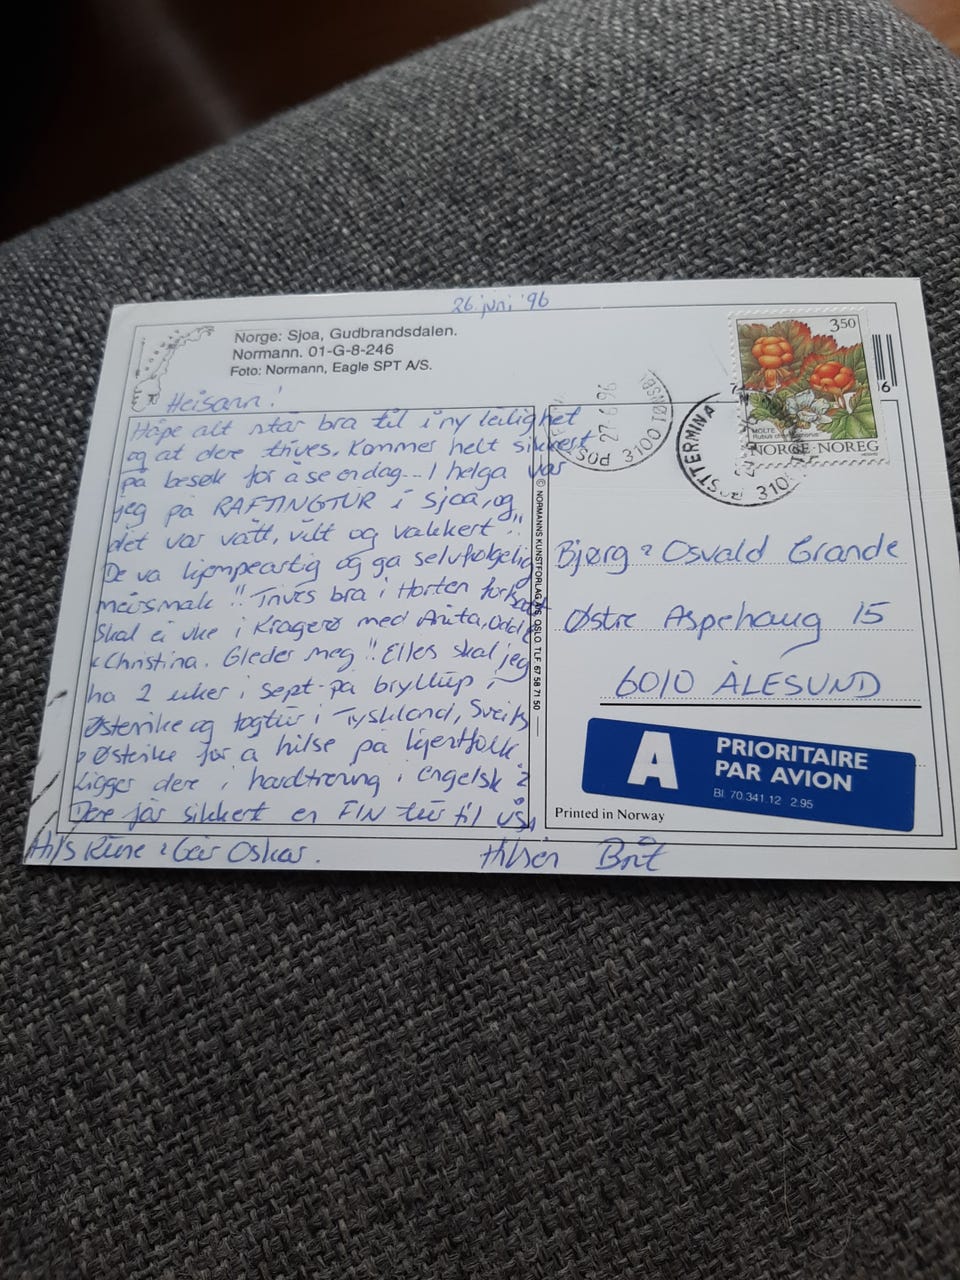 26. juni '96
Norge: Sjoa, Gudbrandsdalen.
Normann. 01-G-8-246
Foto: Normann, Eagle SPT A/S.
Heisann!
Håpe alt står bra til i ny leilighet
og at dere trives. Kommer helt sikkert
på besøk for å se en dag... I helga var
jeg på RAFTINGTUR i Sjoa, og
det var vått, vilt og vakkert!!
De va kjempeartig og ga selvfølgelig
mersmak!! Trives bra i Horten
Skal ei uke i Kragerø med Anita,
& Christina. Gleder meg!! Elles skal jeg
ha 2 uker i sept. på bryllup i
Østerrike og togtur i Tyskland, Sveits
Østerrike for å hilse på kjentfolk
Ligger dere i hardtrening i engelsk?
Dere får sikkert en FIN tur til USA
Hils Rune & Geir Oskar.
Hilsen Brit
© NORMANNS KUNSTFORLAG A/S, OSLO TLF 67 58 71 50
POST
27-6.96
3100 TØNSBE
POSTTERMINA
310
3.50
MOLTE
NORGE·NOREG
Bjørg & Osvald Grande
Østre Aspehaug 15
6010 ÅLESUND
A PRIORITAIRE
PAR AVION
Bl. 70.341.12 2.95
Printed in Norway